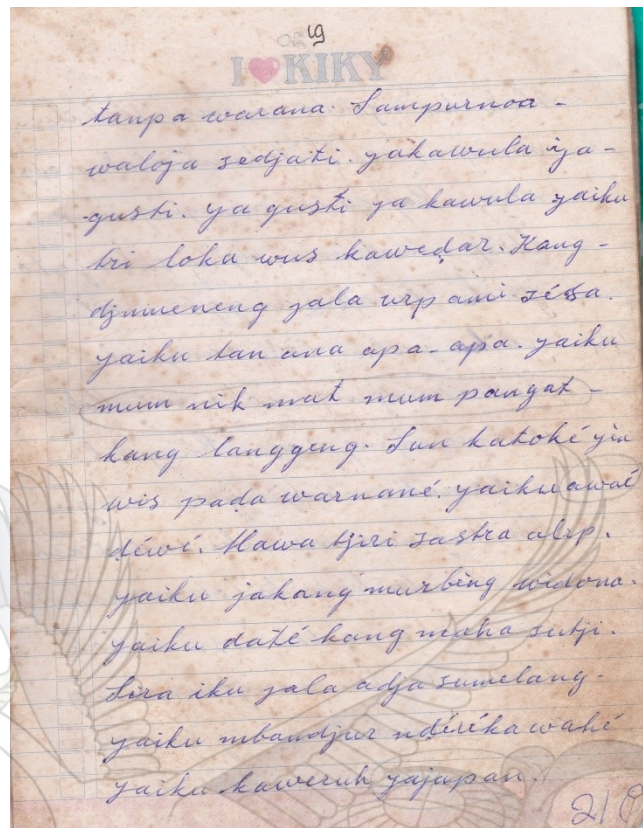 19
I ❤ KIKY
tanpa warana. Sampurnoa -
waloja sedjati. yakawula iya -
gusti. ya gusti ya kawula yaiku
tri loka wus kaweḍar. Kang -
djumeneng yala urp ami
yaiku tan ana apa-apa. yaiku
mum nik mat mum pangat -
kang langgeng. Sun katoké yin
wis paḍa warnané. yaiku awaé
ḍéwé. Mawa tjiri sastra alip.
yaiku jakang murbèng widona.
yaiku daté kang maha sutji.
Sira iku yala adja sumelang -
yaiku mbandjur nḍéréka wahé
yaiku kaweruh yajapan.